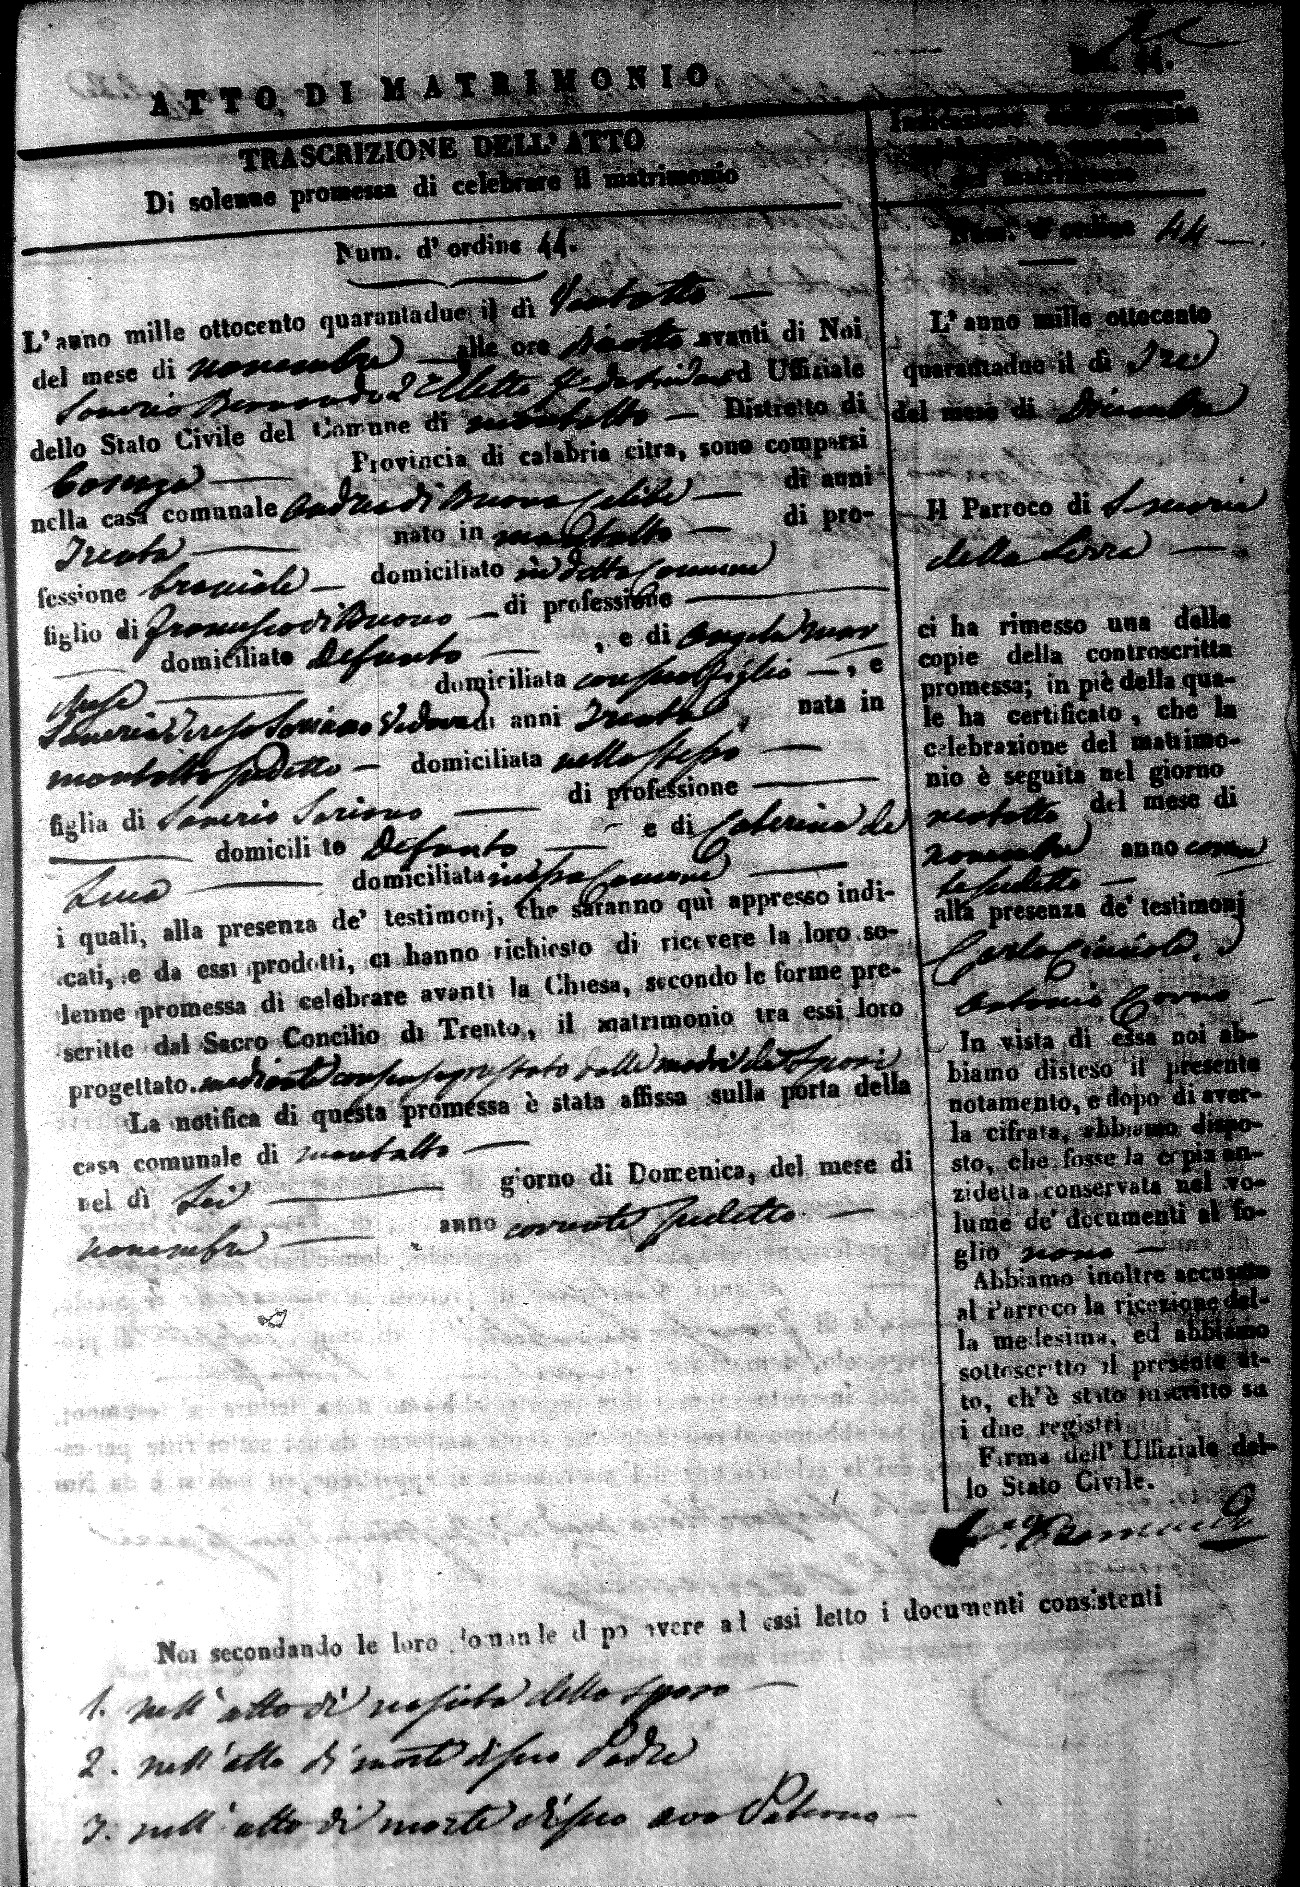 Num. 44.
ATTO DI MATRIMONIO
TRASCRIZIONE DELL'ATTO
Di solenne promessa di celebrare il matrimonio
Num. d'ordine 44.
L'anno mille ottocento quarantadue il dì Ventotto
del mese di novembre alle ore Diciotto avanti di Noi
Saverio 2° Eletto ed Uffiziale
dello Stato Civile del Comune di montalto Distretto di
Cosenza Provincia di calabria citra, sono comparsi
nella casa comunale Andrea di Buono Celibe di anni
Trenta nato in montalto di pro-
fessione bracciale domiciliato in detta Comune
figlio di Francesco di Buono di professione
domiciliato Defunto , e di Angela
domiciliata con suo figlio , e
Saveria Teresa Soriano Vedova di anni Trenta , nata in
montalto sudetto domiciliata nello stesso
figlia di Saverio Soriano di professione
domicili to Defunto e di Caterina de
Luca domiciliata in essa Comune
i quali, alla presenza de' testimonj, che saranno quì appresso indi-
cati, e da essi prodotti, ci hanno richiesto di ricevere la loro so-
lenne promessa di celebrare avanti la Chiesa, secondo le forme pre-
scritte dal Sacro Concilio di Trento, il matrimonio tra essi loro
progettato. mediante consenso prestato dalle madri de' Sposi
La notifica di questa promessa è stata affissa sulla porta della
casa comunale di montalto
nel dì Sei giorno di Domenica, del mese di
novembre anno corrente sudetto
Indicazione della seguita
celebrazione canonica
del matrimonio
Num. d'ordine 44
L'anno mille ottocento
quarantadue il dì Tre
del mese di Dicembre
Il Parroco di S. maria
della Serra
ci ha rimesso una delle
copie della controscritta
promessa; in piè della qua-
le ha certificato, che la
celebrazione del matrimo-
nio è seguita nel giorno
ventotto del mese di
novembre anno corren
te sudetto
alla presenza de' testimonj
Carlo
Antonio
In vista di essa noi ab-
biamo disteso il presente
notamento, e dopo di aver-
la cifrata, abbiamo dispo-
sto, che fosse la copia an-
zidetta conservata nel vo-
lume de' documenti al fo-
glio nono
Abbiamo inoltre accusato
al Parroco la ricezione del-
la medesima, ed abbiamo
sottoscritto il presente at-
to, ch'è stato inscritto su
i due registri
Firma dell'Uffiziale del-
lo Stato Civile.
Noi secondando le loro domande dopo avere ad essi letto i documenti consistenti
1. nell'atto di nascita dello sposo
2. nell'atto di morte di suo Padre
3. nell'atto di morte di suo avo Paterno